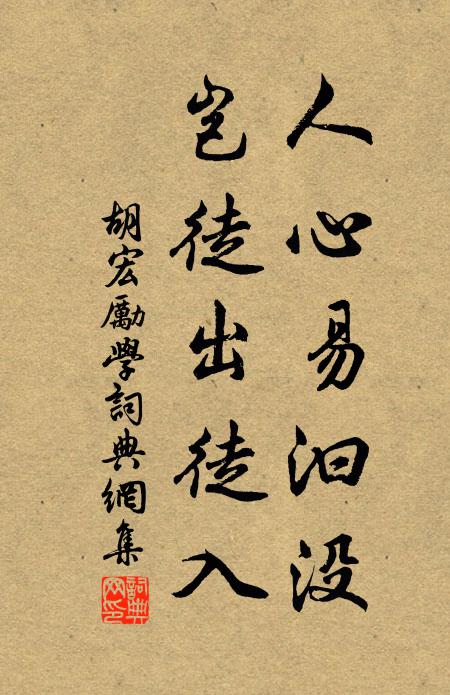 人心易汩没
岂徒出徒入
胡宏勵學詞典網集
詞典网印